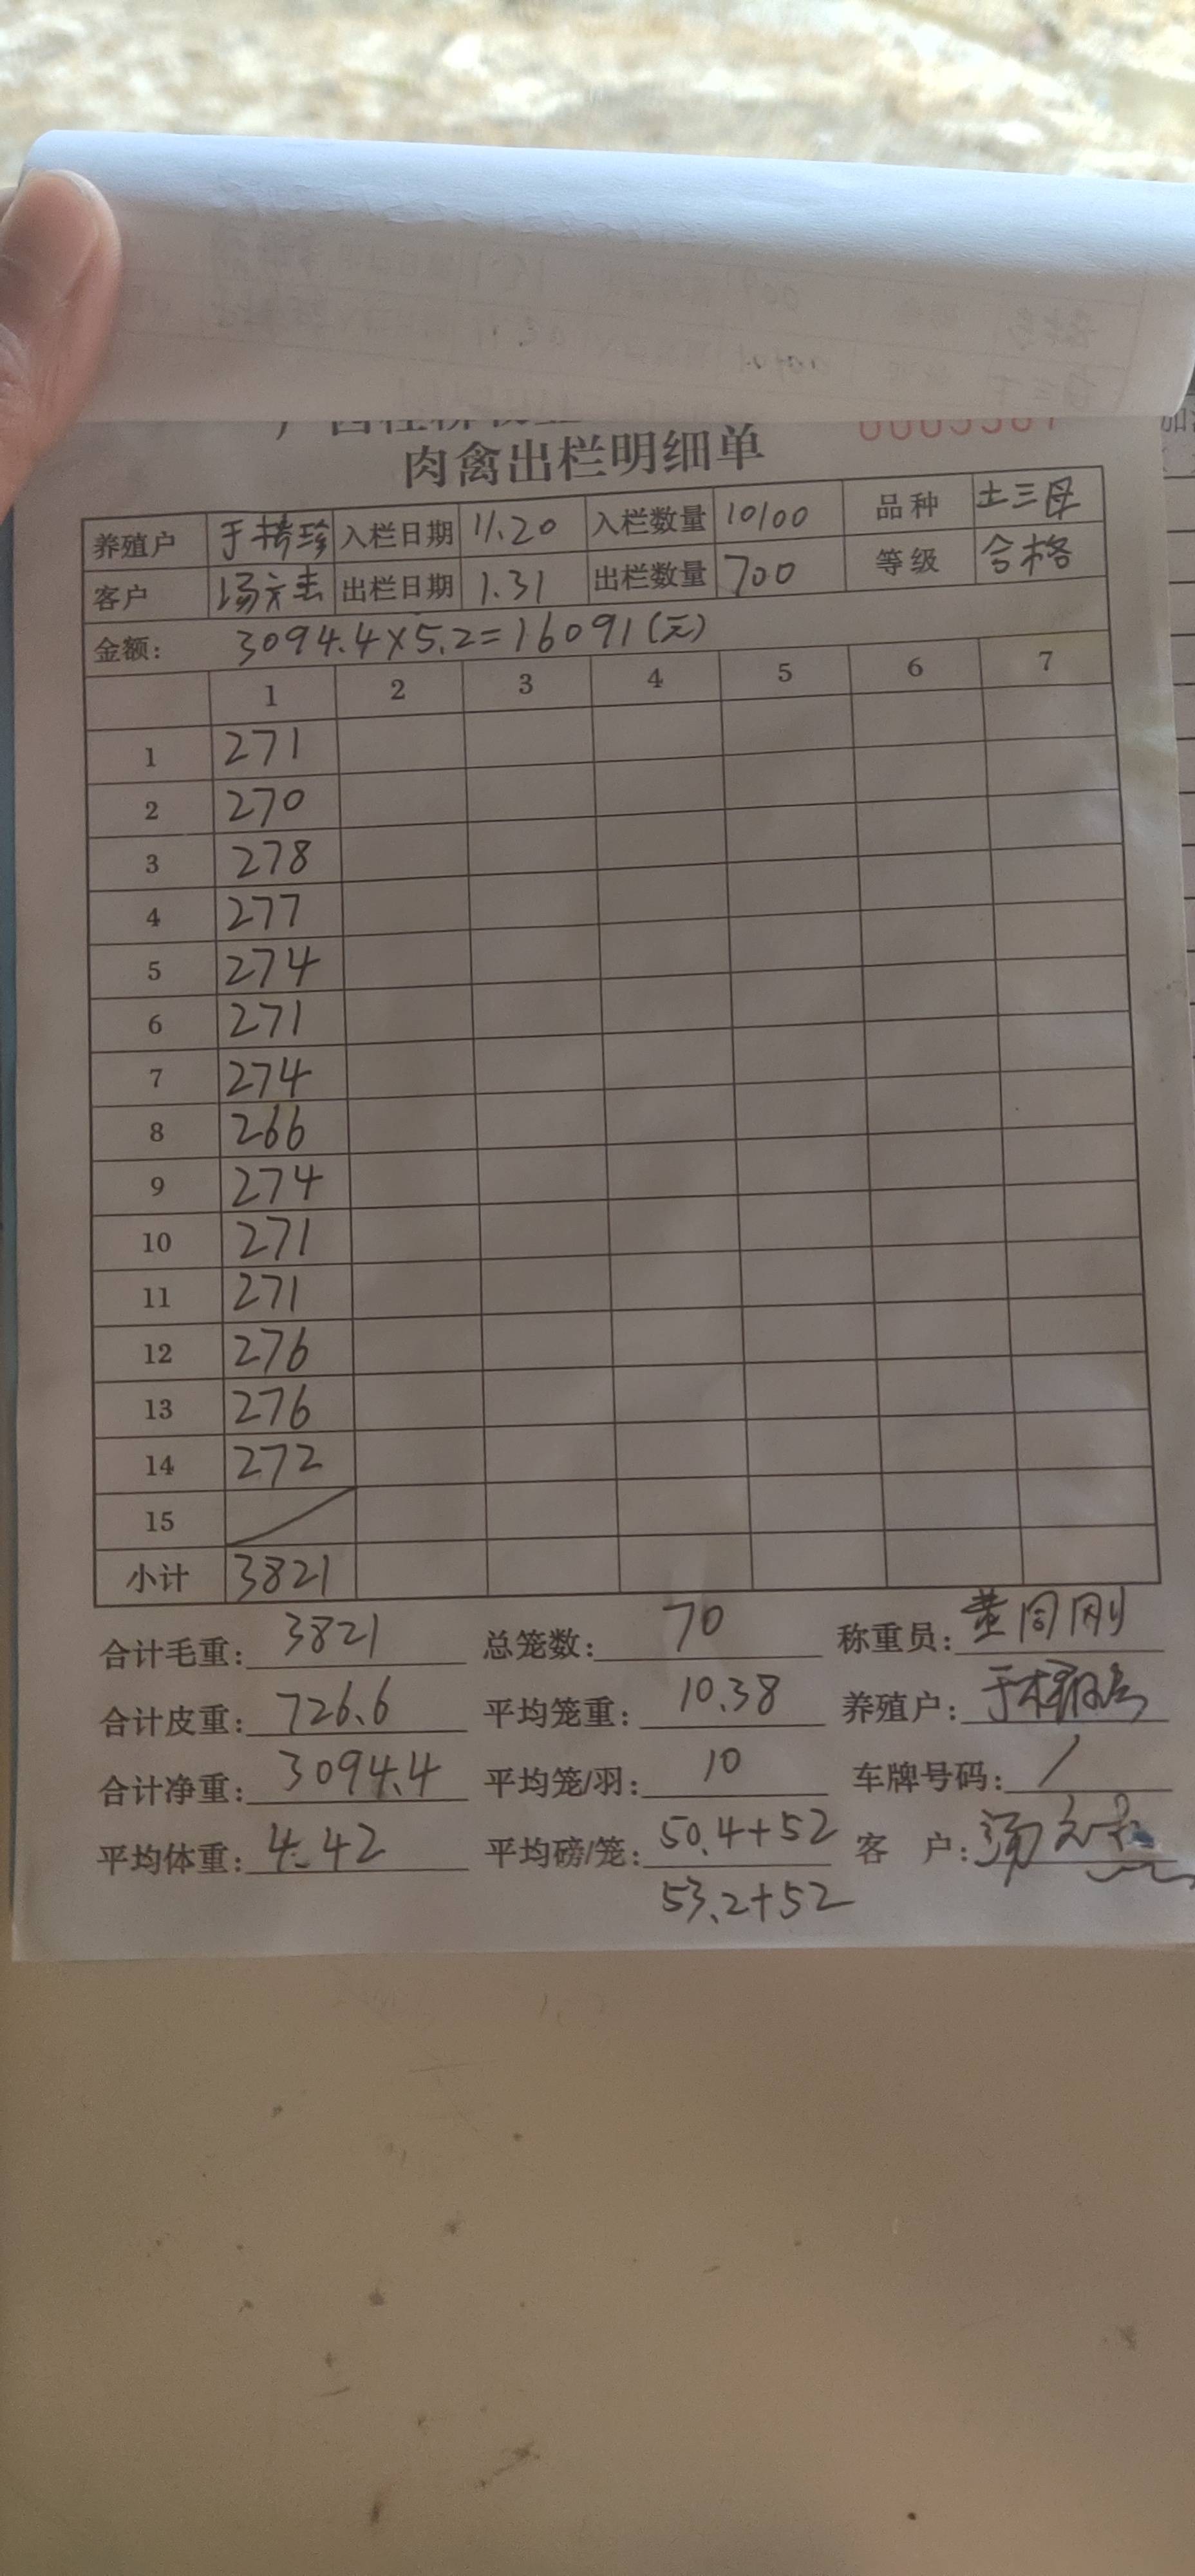 肉禽出栏明细单
养殖户 入栏日期 11.20 入栏数量 10100 品种 土三母
客户 出栏日期 1.31 出栏数量 700 等级 合格
金额: 3094.4×5.2=16091(元)
1 2 3 4 5 6 7
1 271
2 270
3 278
4 277
5 274
6 271
7 274
8 266
9 274
10 271
11 271
12 276
13 276
14 272
15
小计 3821
合计毛重: 3821 总笼数: 70 称重员:
合计皮重: 726.6 平均笼重: 10.38 养殖户:
合计净重: 3094.4 平均笼/羽: 10 车牌号码: /
平均体重: 4.42 平均磅/笼: 50.4+52 客 户:
53.2+52